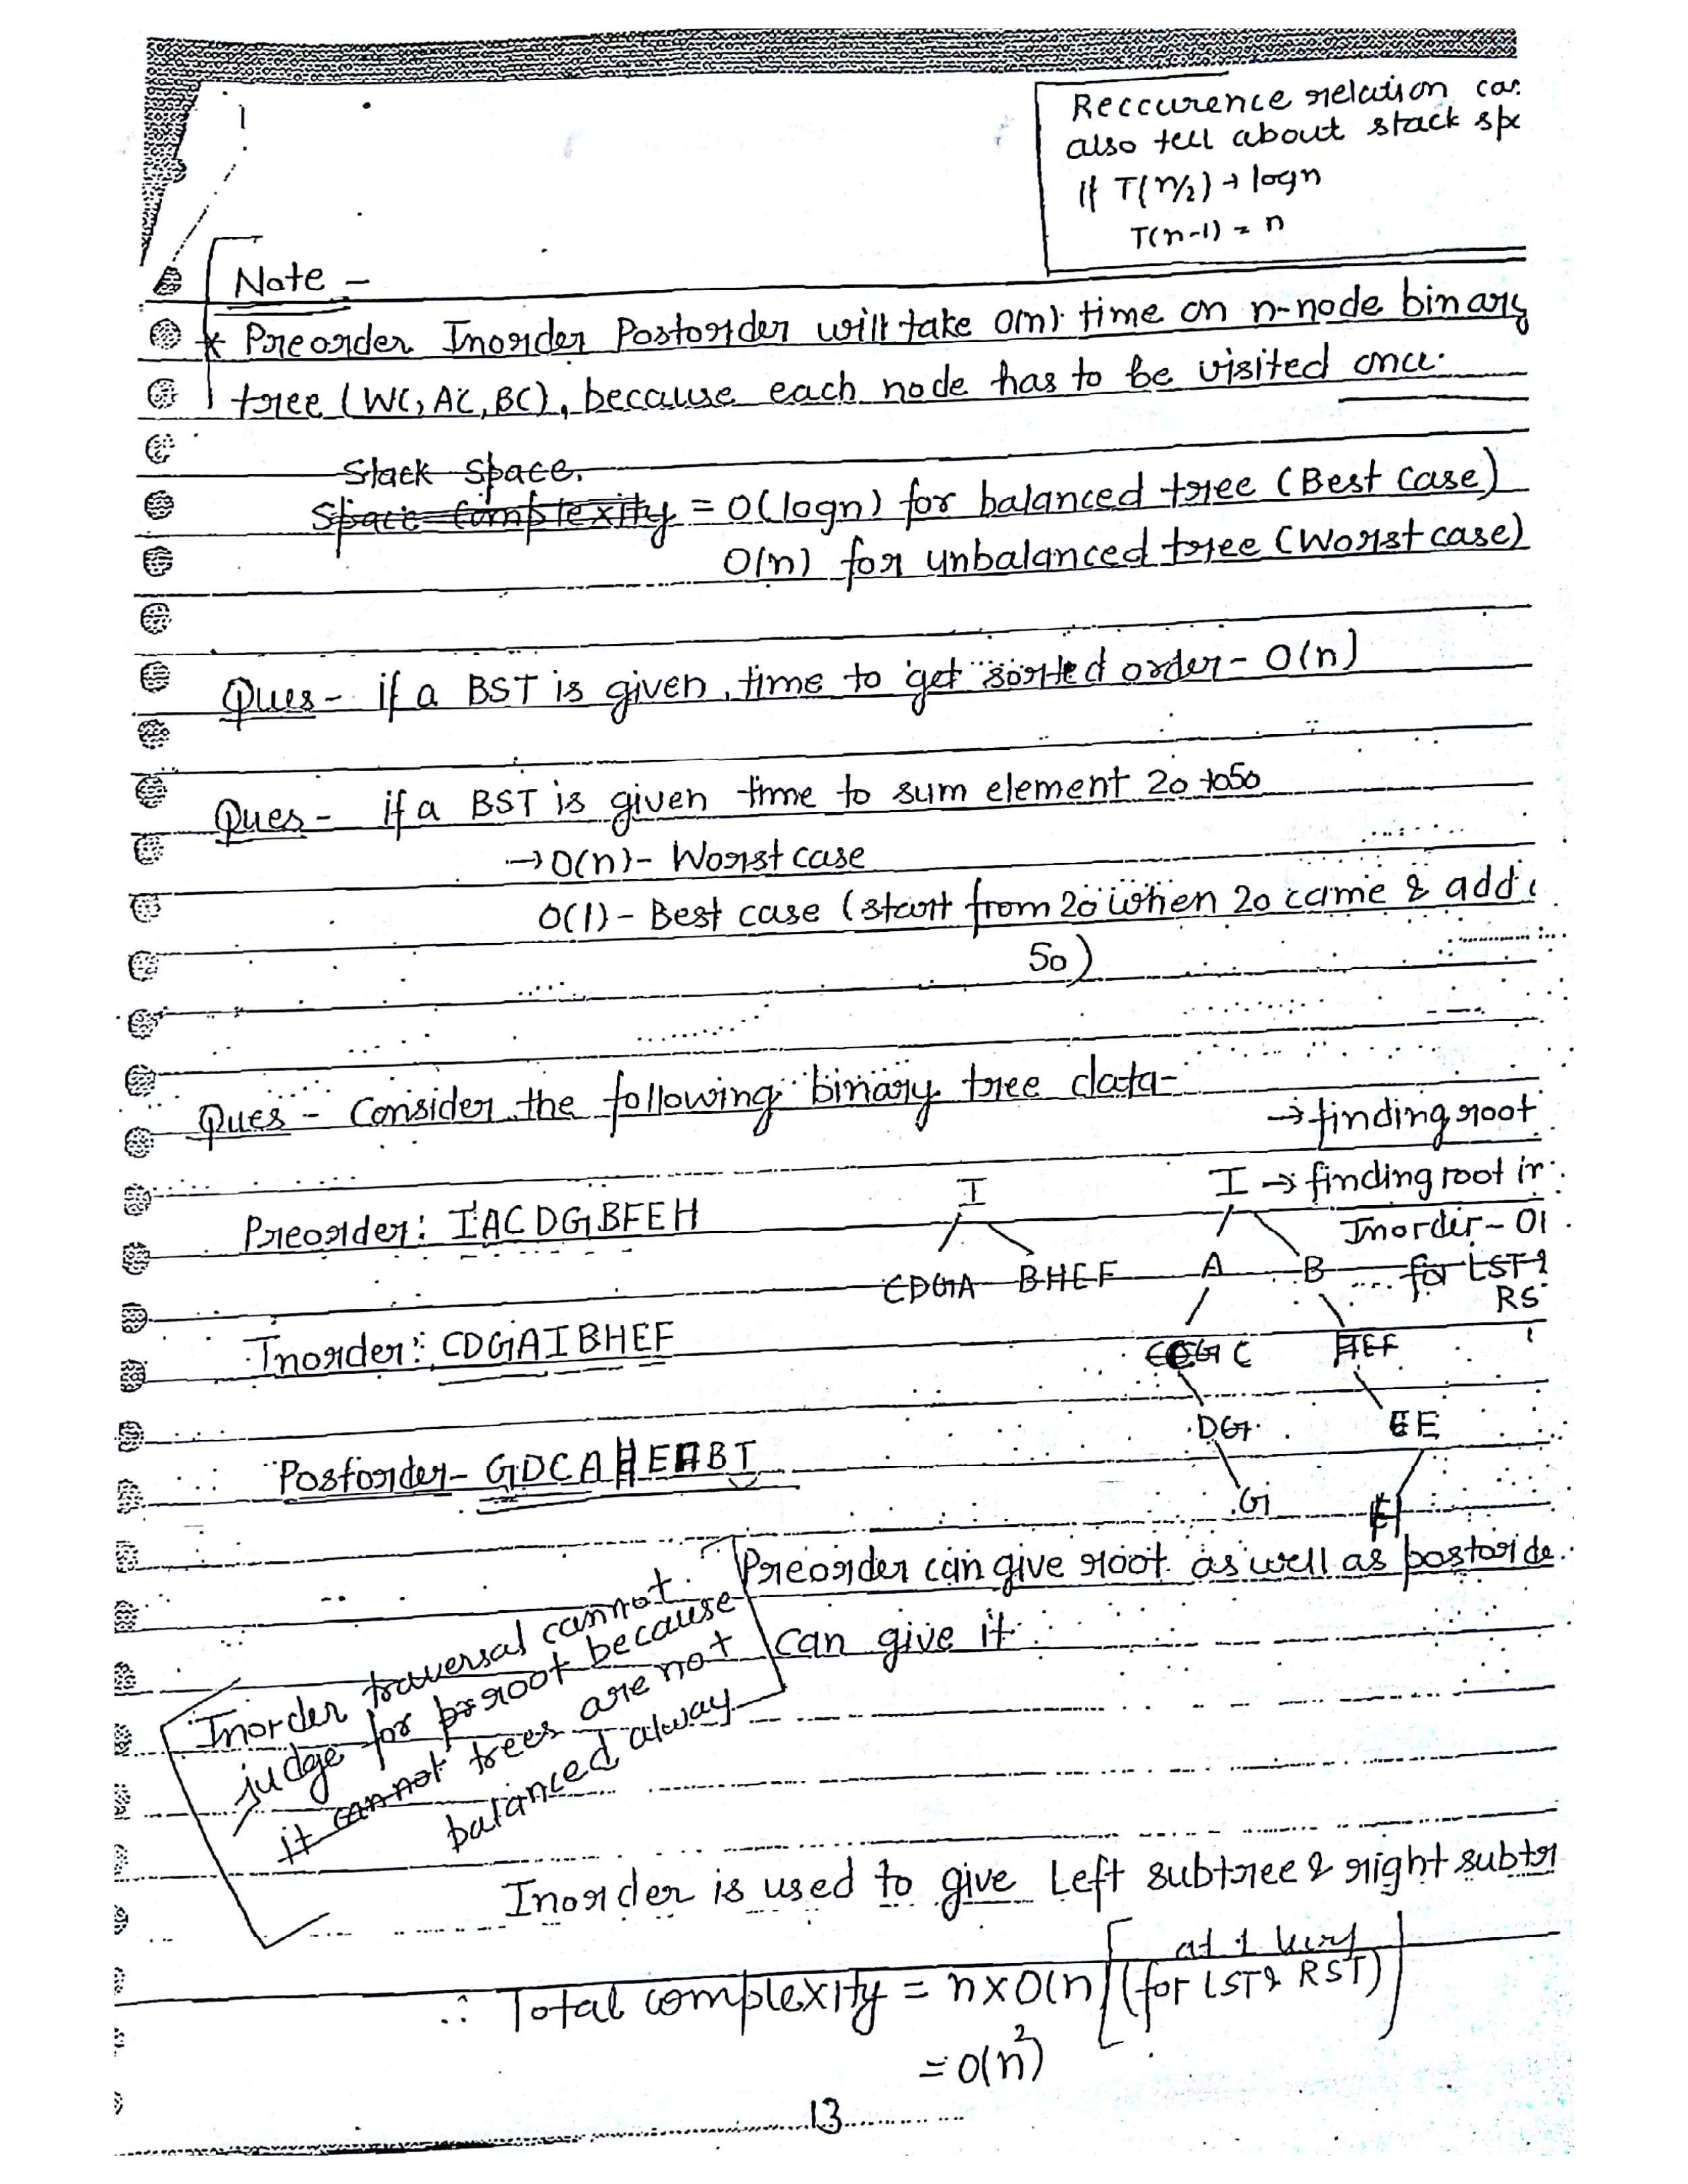 Reccurence relation can
also tell about stack
If T(n/2) → logn
T(n-1) = n
Note -
* Preorder Inorder Postorder will take O(n) time on n-node binary
tree (WC, AC, BC), because each node has to be visited once.
Stack Space.
Space Complexity = O(logn) for balanced tree (Best Case)
O(n) for unbalanced tree (Worst case)
Ques - if a BST is given, time to get sorted order - O(n)
Ques - if a BST is given time to sum element 20 to 50
→ O(n) - Worst case
O(1) - Best case (start from 20 when 20 came & add
50)
Ques - Consider the following binary tree data-
→ finding root
I
I → finding root in
Preorder: IACDGBFEH
Inorder - O(
CDGA BHEF
A B
for LST &
RS
Inorder: CDGAIBHEF
C HEF
DG E
Postorder - GDCA HE BI
G H
Preorder can give root as well as postorde
can give it
Inorder traversal cannot
judge for root because
it cannot trees are not
balanced alway
Inorder is used to give Left subtree & right subtr
at 1
∴ Total complexity = n x O(n) (for LST & RST)
= O(n²)
13